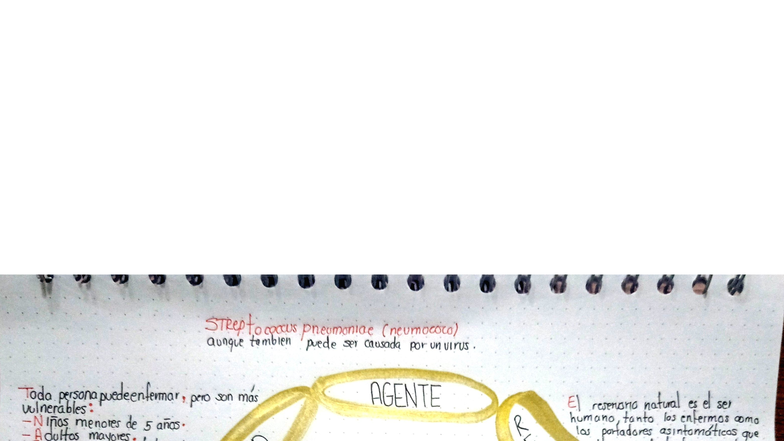 STReptococcus pneumoniae (neumococo)
aunque tambien puede ser causada por un virus.
AGENTE
Toda persona puede enfermar, pero son más
vulnerables:
-Niños menores de 5 años.
-Adultos mayores.
El reservorio natural es el ser
humano, tanto los enfermos como
los portadores asintomáticos que